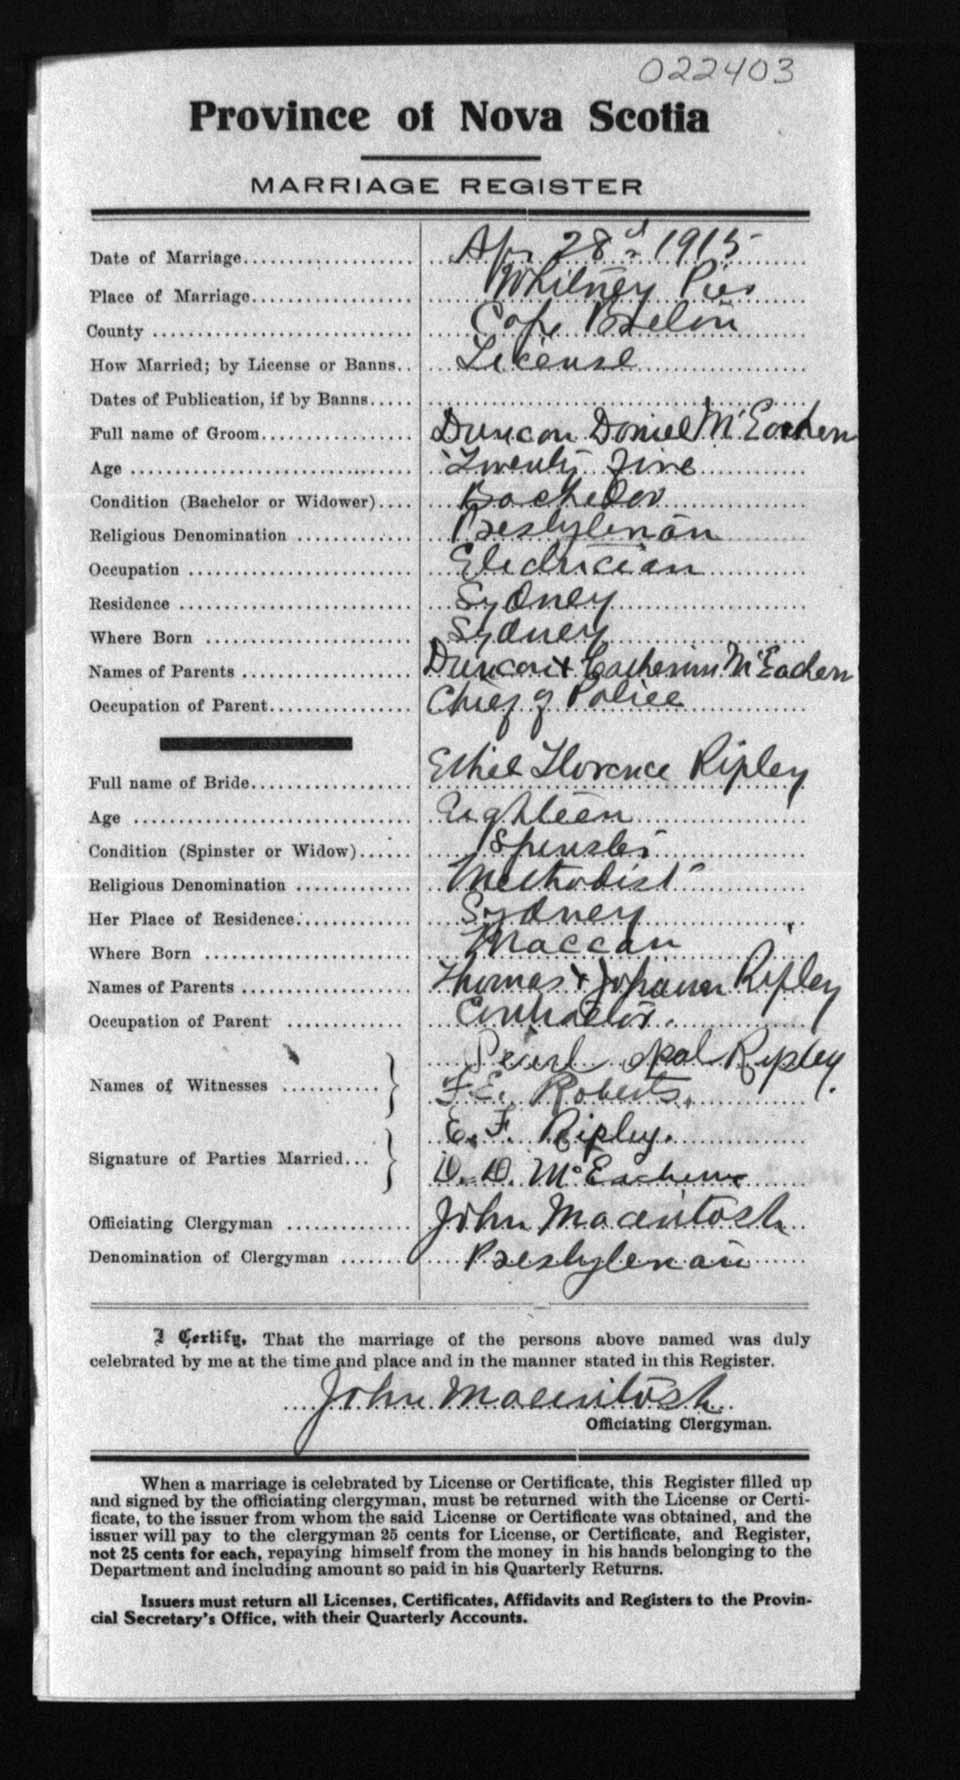 022403
Province of Nova Scotia
MARRIAGE REGISTER
Date of Marriage.................... Apr 28th 1915
Place of Marriage.................. Whitney Pier
County ............................ Cape Breton
How Married; by License or Banns.. License
Dates of Publication, if by Banns.....
Full name of Groom................. Duncan Daniel McEachern
Age ............................... Twenty five
Condition (Bachelor or Widower).... Bachelor
Religious Denomination ............. Presbyterian
Occupation ........................ Electrician
Residence ......................... Sydney
Where Born ........................ Sydney
Names of Parents ................... Duncan + Catherine McEachern
Occupation of Parent................ Chief of Police
Full name of Bride.................. Ethel Florence Ripley
Age ............................... Eighteen
Condition (Spinster or Widow)...... Spinster
Religious Denomination ............. Methodist
Her Place of Residence.............. Sydney
Where Born ........................ Maccan
Names of Parents ................... Thomas + Johanna Ripley
Occupation of Parent ............. Contractor.
Names of Witnesses ........... } Pearl Opal Ripley.
F. E. Roberts.
Signature of Parties Married... } E. F. Ripley.
D. D. McEachern
Officiating Clergyman .............. John Macintosh
Denomination of Clergyman ....... Presbyterian
I Certify, That the marriage of the persons above named was duly
celebrated by me at the time and place and in the manner stated in this Register.
John Macintosh
Officiating Clergyman.
When a marriage is celebrated by License or Certificate, this Register filled up
and signed by the officiating clergyman, must be returned with the License or Certi-
ficate, to the issuer from whom the said License or Certificate was obtained, and the
issuer will pay to the clergyman 25 cents for License, or Certificate, and Register,
not 25 cents for each, repaying himself from the money in his hands belonging to the
Department and including amount so paid in his Quarterly Returns.
Issuers must return all Licenses, Certificates, Affidavits and Registers to the Provin-
cial Secretary's Office, with their Quarterly Accounts.